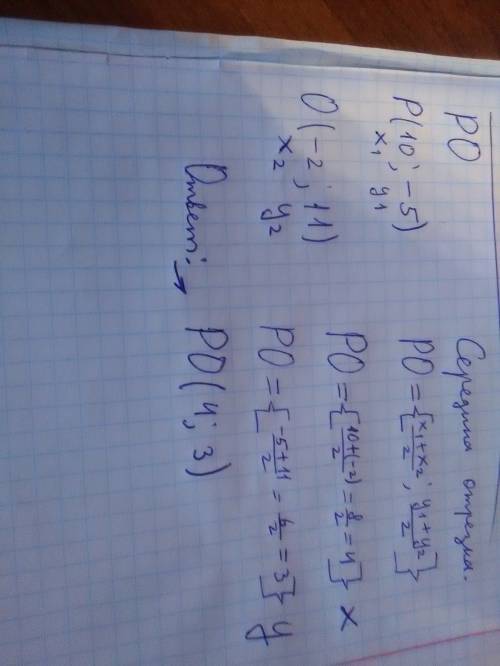 PO
P(10; -5)
x₁ y₁
O(-2; 11)
x₂ y₂
Середина отрезка.
PO = {[x₁+x₂/2; y₁+y₂/2]}
PO = {[10+(-2)/2 = 8/2 = 4]} x
PO = {[-5+11/2 = 6/2 = 3]} y
Ответ: → PO(4; 3)